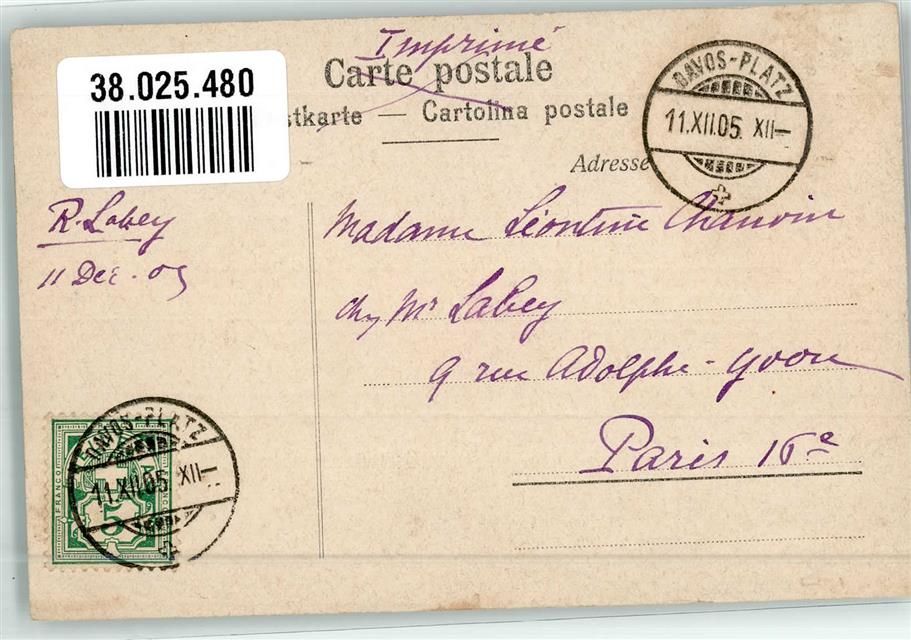 Imprimé
38.025.480
Carte postale
stkarte — Cartolina postale
Adresse
DAVOS-PLATZ
11.XII.05. XII—
R. Labey
11 Dec. 05
Madame Léontine Chauvin
chez Mr Labey
9 rue Adolphe-Yvon
Paris 16e
DAVOS-PLATZ
11.XII.05 XII—
FRANCO
5